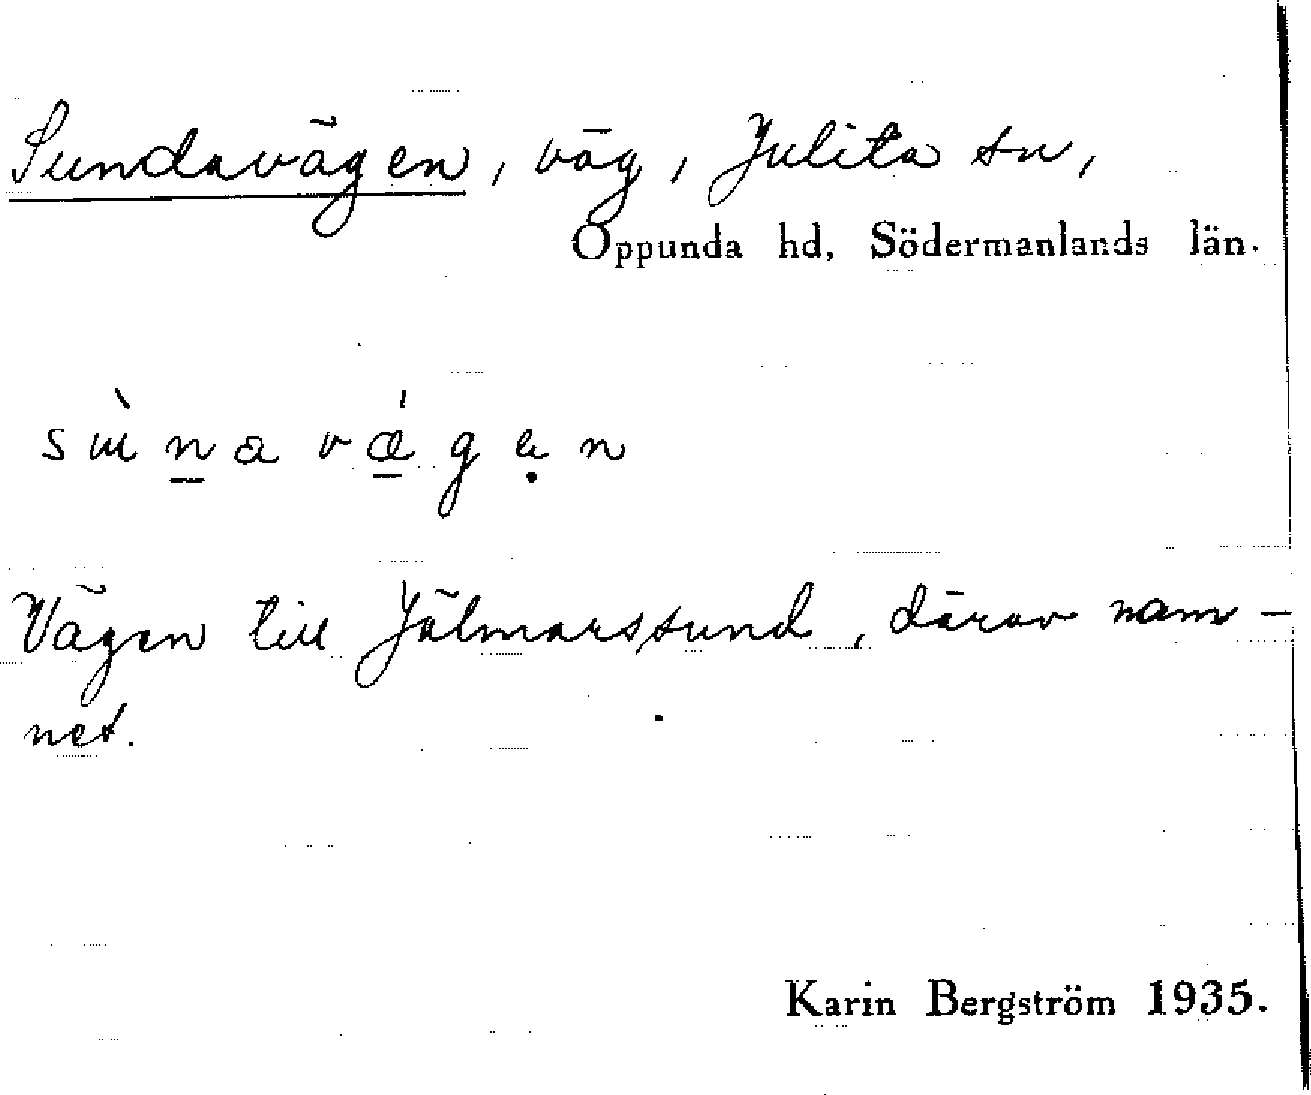 Sundavägen, väg, Julita sn,
Oppunda hd, Södermanlands län.
sùn̲a vǽ̲gẹn
Vägen till Jälmarssund, därav nam-
net.
Karin Bergström 1935.